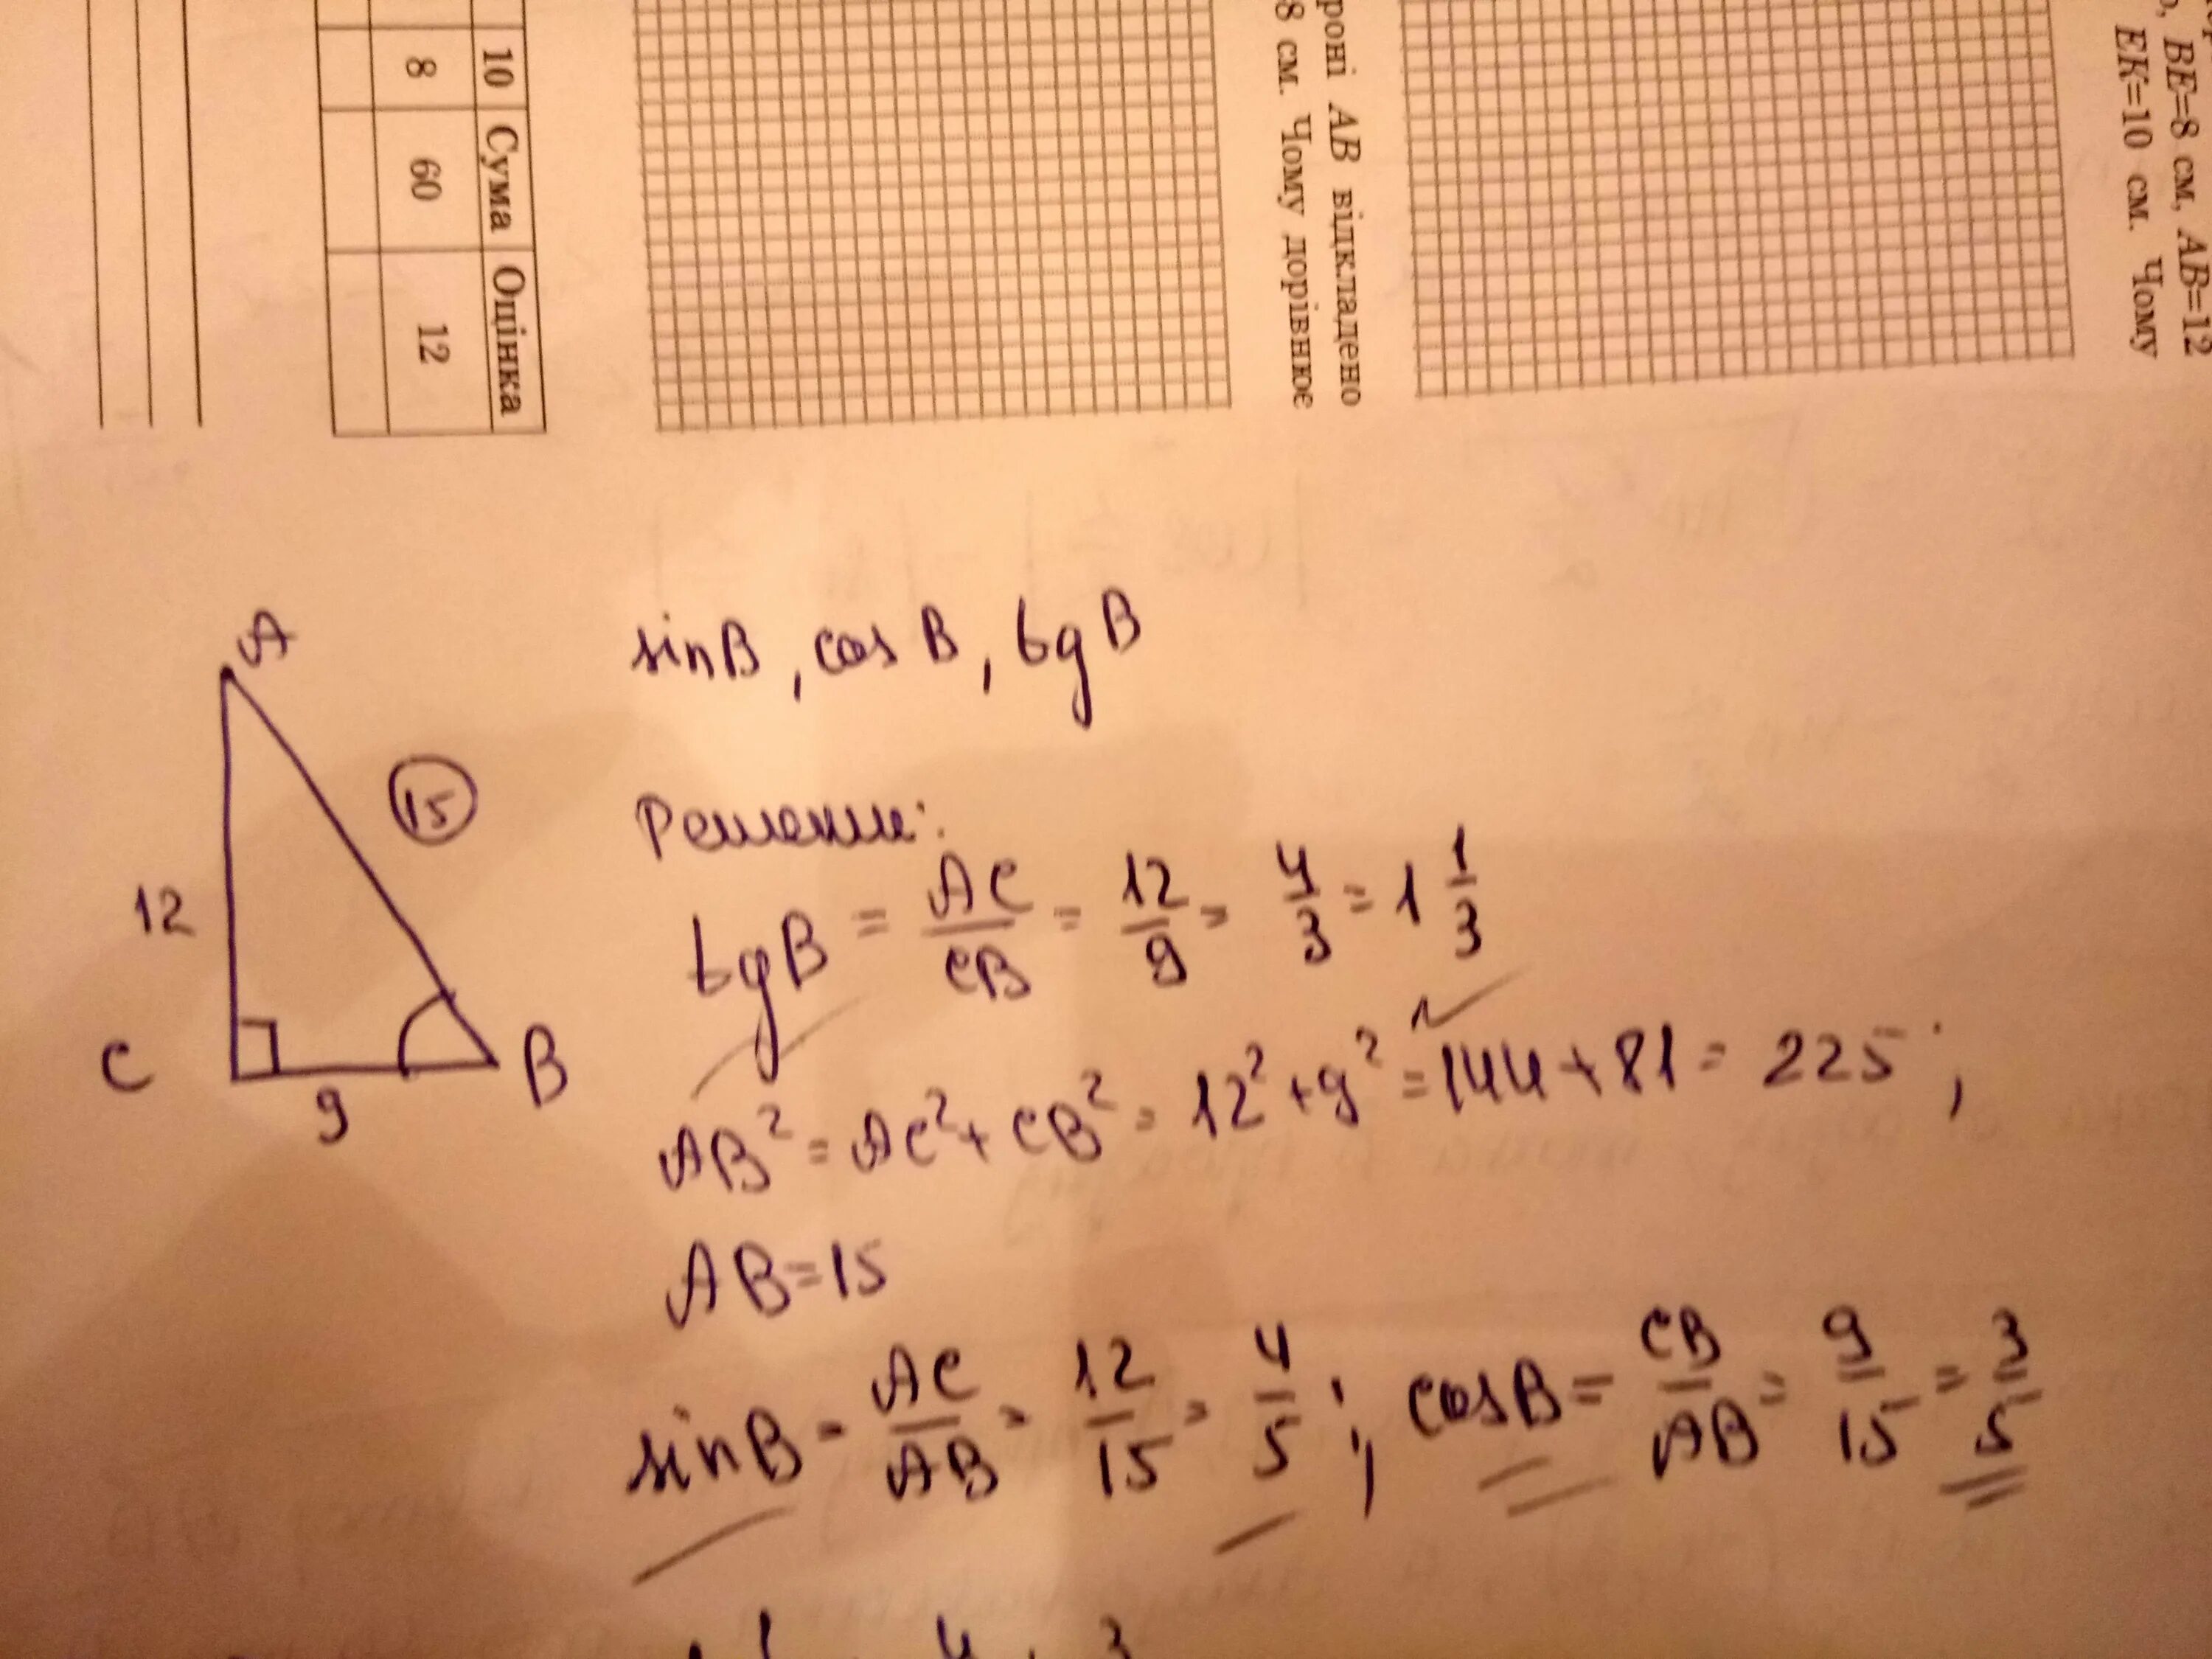 10 Сума Оцінка
8 60 12
роні AB відкладено
8 см. Чому дорівнює
BE=8 см, AB=12
EK=10 см. Чому
sinB, cosB, tgB
A
15
12
C
9
B
Решение:
tgB = AC/CB = 12/9 = 4/3 = 1 1/3
AB² = AC² + CB² = 12² + 9² = 144 + 81 = 225;
AB=15
sinB = AC/AB = 12/15 = 4/5; cosB = CB/AB = 9/15 = 3/5